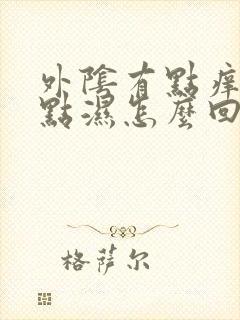 外陰有點痒
點濕怎麼回
格萨尔